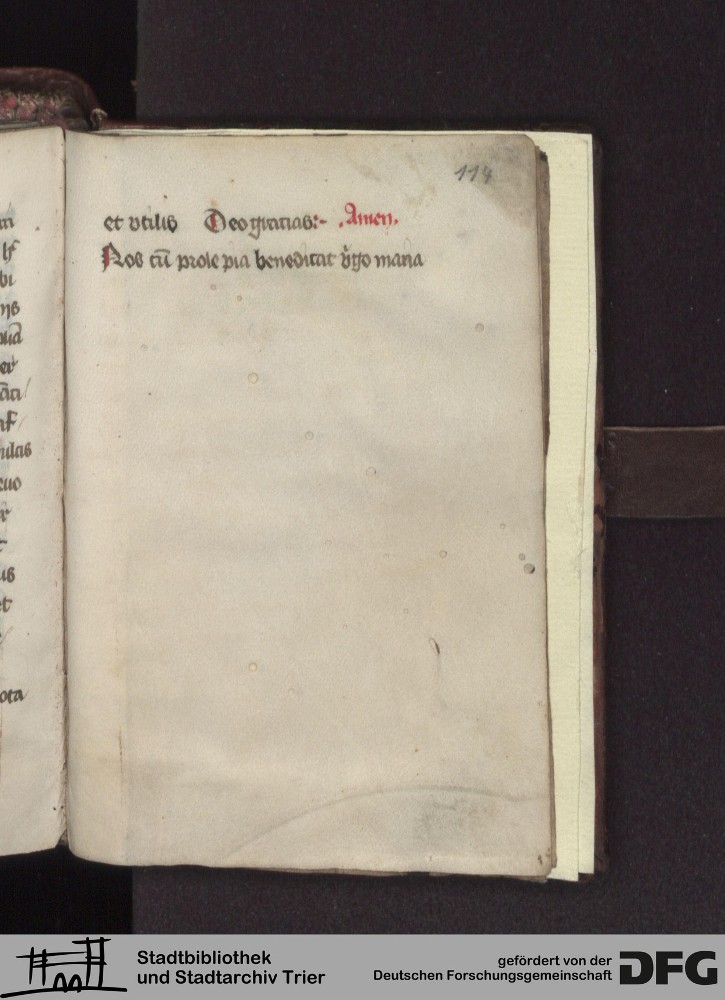 114
et vtilis Deo gracias:- .Amen.
Nos cū prole pia benedicat v̓go maria
ota
Stadtbibliothek
und Stadtarchiv Trier
gefördert von der
Deutschen Forschungsgemeinschaft
DFG